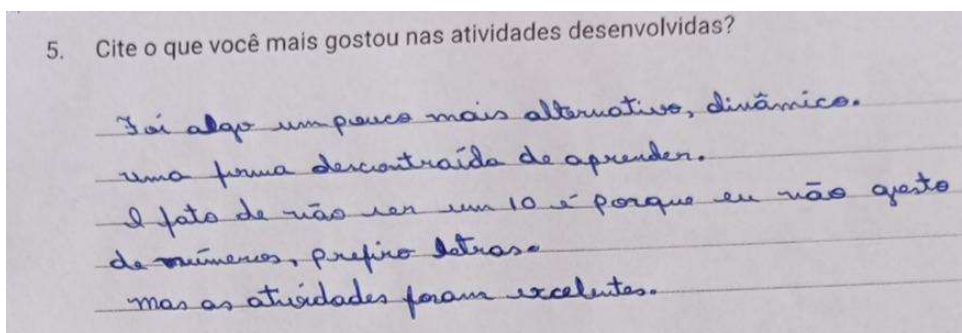 5. Cite o que você mais gostou nas atividades desenvolvidas?
Foi algo um pouco mais alternativo, dinâmico.
uma forma descontraída de aprender.
O fato de não ser um 10 é porque eu não gosto
de números, prefiro letras.
mas as atividades foram excelentes.